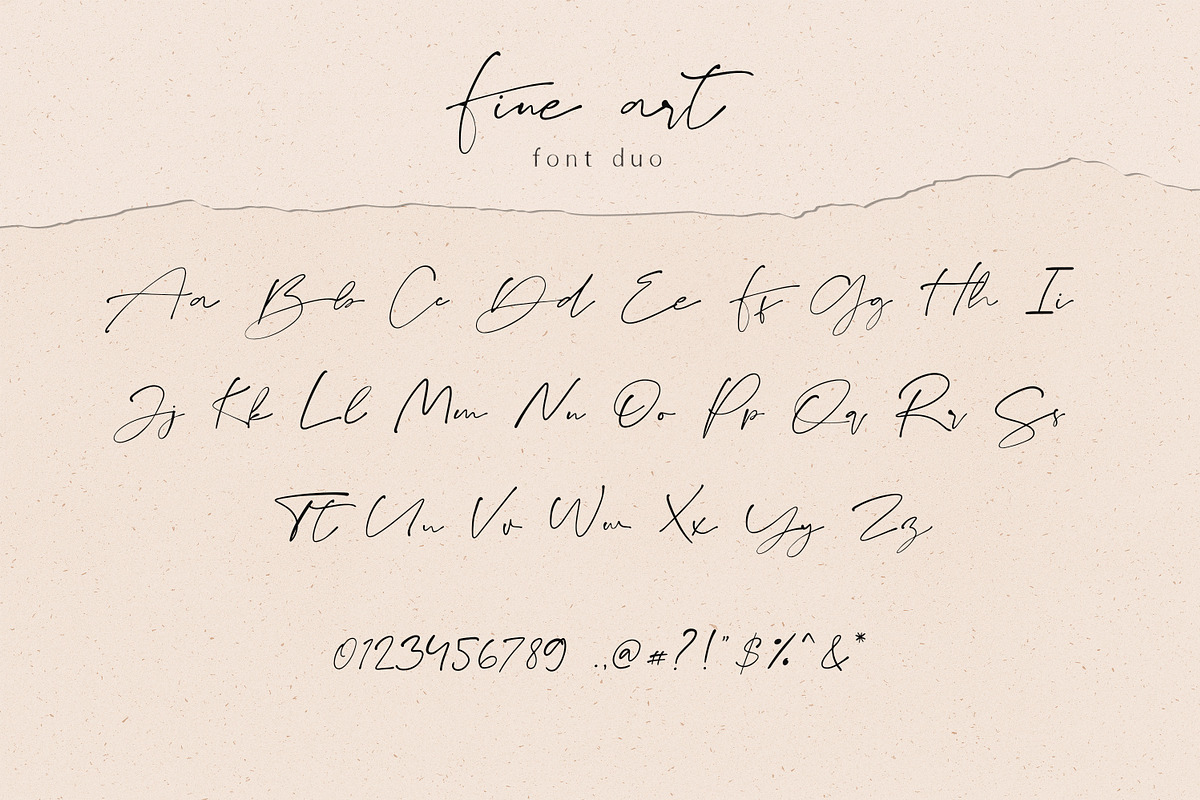 fine art
font duo
Aa Bb Cc Dd Ee Ff Gg Hh Ii
Jj Kk Ll Mm Nn Oo Pp Qq Rr Ss
Tt Uu Vv Ww Xx Yy Zz
0123456789 .,@#?!"$%^&*